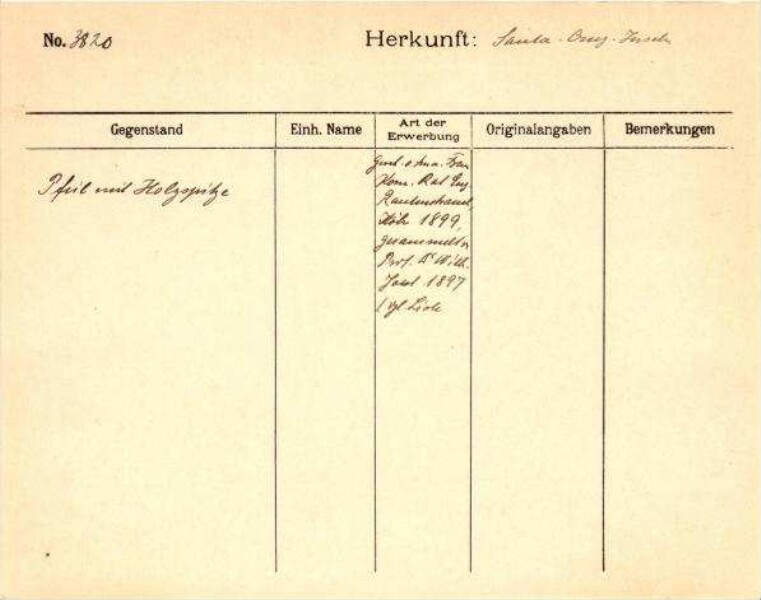 No. 3820
Herkunft: Santa-Cruz-Inseln
Gegenstand
Einh. Name
Art der Erwerbung
Originalangaben
Bemerkungen
Pfeil mit Holzspitze
Gesch. Frau
Kom. Rat Eug.
Rautenstrauch,
Köln 1899,
gesammelt v.
Prof. Dr Wilh.
Joest 1897
(vgl. Liste